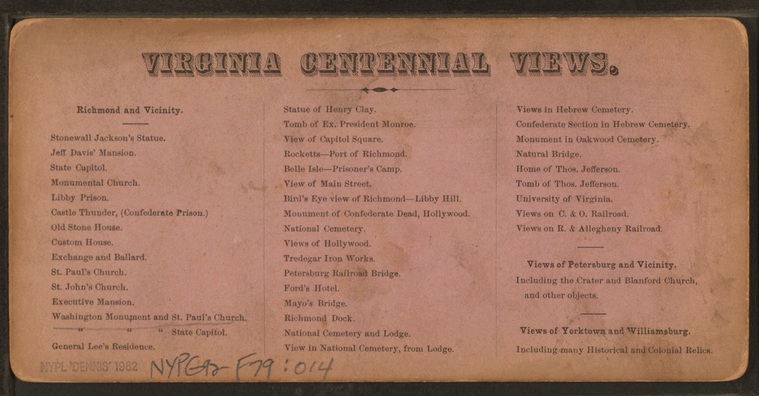 VIRGINIA CENTENNIAL VIEWS.
Richmond and Vicinity.
Stonewall Jackson's Statue.
Jeff Davis' Mansion.
State Capitol.
Monumental Church.
Libby Prison.
Castle Thunder, (Confederate Prison.)
Old Stone House.
Custom House.
Exchange and Ballard.
St. Paul's Church.
St. John's Church.
Executive Mansion.
Washington Monument and St. Paul's Church.
" " " State Capitol.
General Lee's Residence.
Statue of Henry Clay.
Tomb of Ex. President Monroe.
View of Capitol Square.
Rocketts—Port of Richmond.
Belle Isle—Prisoner's Camp.
View of Main Street.
Bird's Eye view of Richmond—Libby Hill.
Monument of Confederate Dead, Hollywood.
National Cemetery.
Views of Hollywood.
Tredegar Iron Works.
Petersburg Railroad Bridge.
Ford's Hotel.
Mayo's Bridge.
Richmond Dock.
National Cemetery and Lodge.
View in National Cemetery, from Lodge.
Views in Hebrew Cemetery.
Confederate Section in Hebrew Cemetery.
Monument in Oakwood Cemetery.
Natural Bridge.
Home of Thos. Jefferson.
Tomb of Thos. Jefferson.
University of Virginia.
Views on C. & O. Railroad.
Views on R. & Allegheny Railroad.
Views of Petersburg and Vicinity.
Including the Crater and Blanford Church,
and other objects.
Views of Yorktown and Williamsburg.
Including many Historical and Colonial Relics.
NYPL 'DENNIS' 1982
NYPG92-F79:014